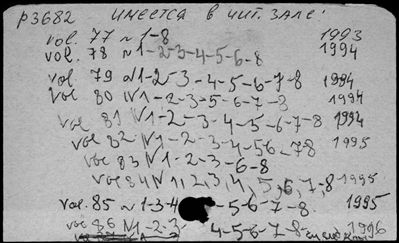 р3682 имеется в чит. зале:
vol. 77 N 1-8 1993
vol. 78 N 1-2-3-4-5-6-8 1994
vol. 79 N 1-2-3-4-5-6-7-8 1994
vol 80 N 1-2-3-5-6-7-8 1994
vol 81 N 1-2-3-4-5-6-7-8 1994
vol 82 N 1-2-3-4-5-6-7-8 1995
vol 83 N 1-2-3-6-8
vol 84 N 1, 2, 3, 4, 5, 6, 7, 8 1995
vol. 85 N 1-3-4-5-6-7-8 1995
vol 86 N 1-2-3- 4-5-6-7-8 1996